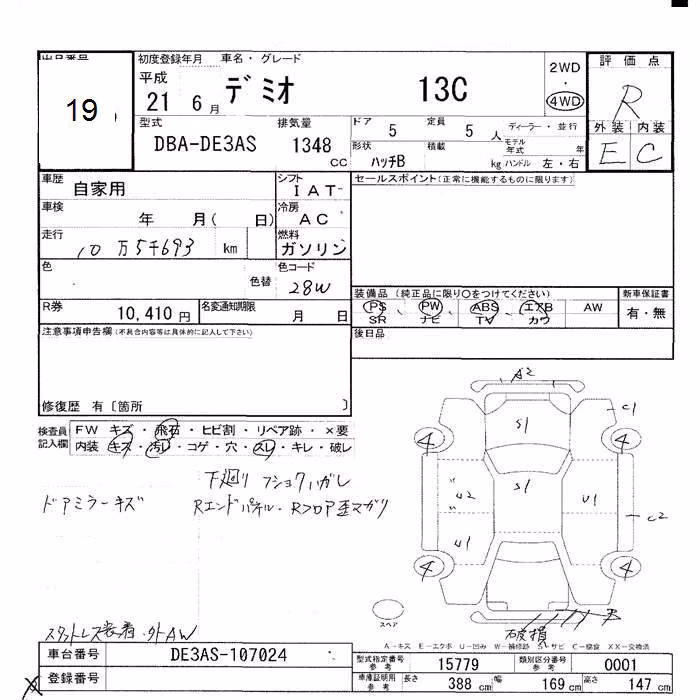 出品番号
19
初度登録年月
平成
21 6月
車名・グレード
デミオ 13C
2WD
・
4WD
評価点
R
外装 内装
E C
型式
DBA-DE3AS
排気量
1348
CC
ドア 5
定員 5 人
ディーラー・並行
形状 ハッチB
積載 kg
モデル年式 年
ハンドル 左・右
車歴 自家用
シフト
IAT
セールスポイント(正常に機能するものに限ります)
車検 年 月( 日)
冷房
AC
走行 10万5千693 km
燃料
ガソリン
色
色替
色コード
28W
R券 10,410円
名変通知期限 月 日
装備品(純正品に限り〇をつけてください)
PS、PW、ABS、エアB AW
SR ナビ TV カワ
新車保証書
有・無
注意事項申告欄(不具合内容等は具体的に記入して下さい)
後日品
修復歴 有〔箇所 〕
検査員記入欄
FW キズ・飛石・ヒビ割・リペア跡・×要
内装 キズ・汚れ・コゲ・穴・スレ・キレ・破レ
下廻り
ドアミラーキズ
Rエンドパネル・Rフロア歪マガリ
スタットレス装着・外AW
A2
S1
C1
4
4
S1
U2
U1
C2
U1
4
4
B
破損
スペア
A-キス E-エクボ U-凹み W-補修跡 S-サビ C-腐食 XX-交換済
車台番号 DE3AS-107024
登録番号
型式指定番号 参考 15779
類別区分番号 参考 0001
車庫証明用 参考 長さ 388 cm 幅 169 cm 高さ 147 cm